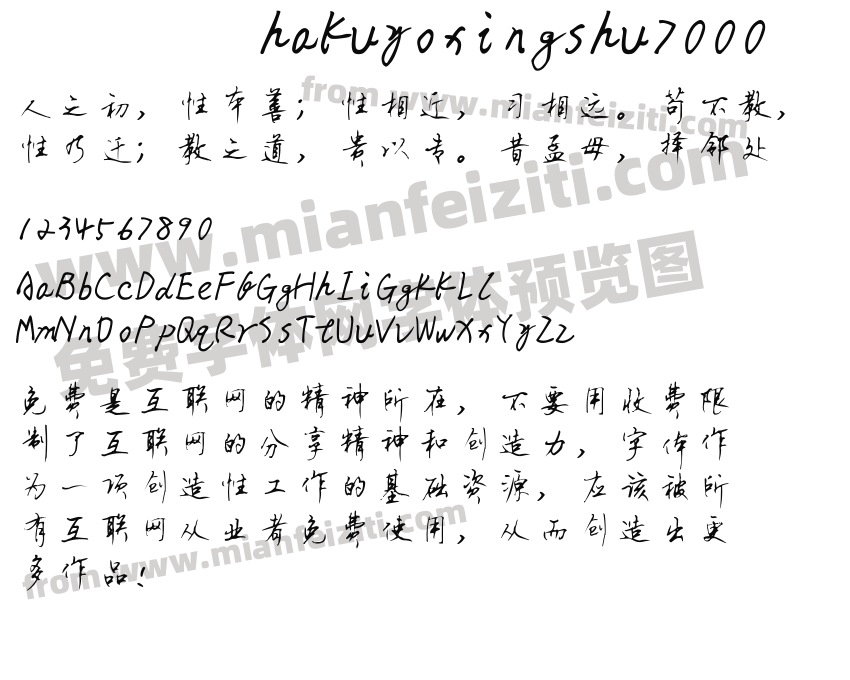 hakuyoxingshu7000
人之初，性本善；性相近，习相远。苟不教，
性乃迁；教之道，贵以专。昔孟母，择邻处
1234567890
AaBbCcDdEeFfGgHhIiGgKKLl
MmNnOoPpQqRrSsTtUuVvWwXxYyZz
免费是互联网的精神所在，不要用收费限
制了互联网的分享精神和创造力，字体作
为一项创造性工作的基础资源，应该被所
有互联网从业者免费使用，从而创造出更
多作品！
from www.mianfeiziti.com
www.mianfeiziti.com
免费字体网字体预览图
from www.mianfeiziti.com